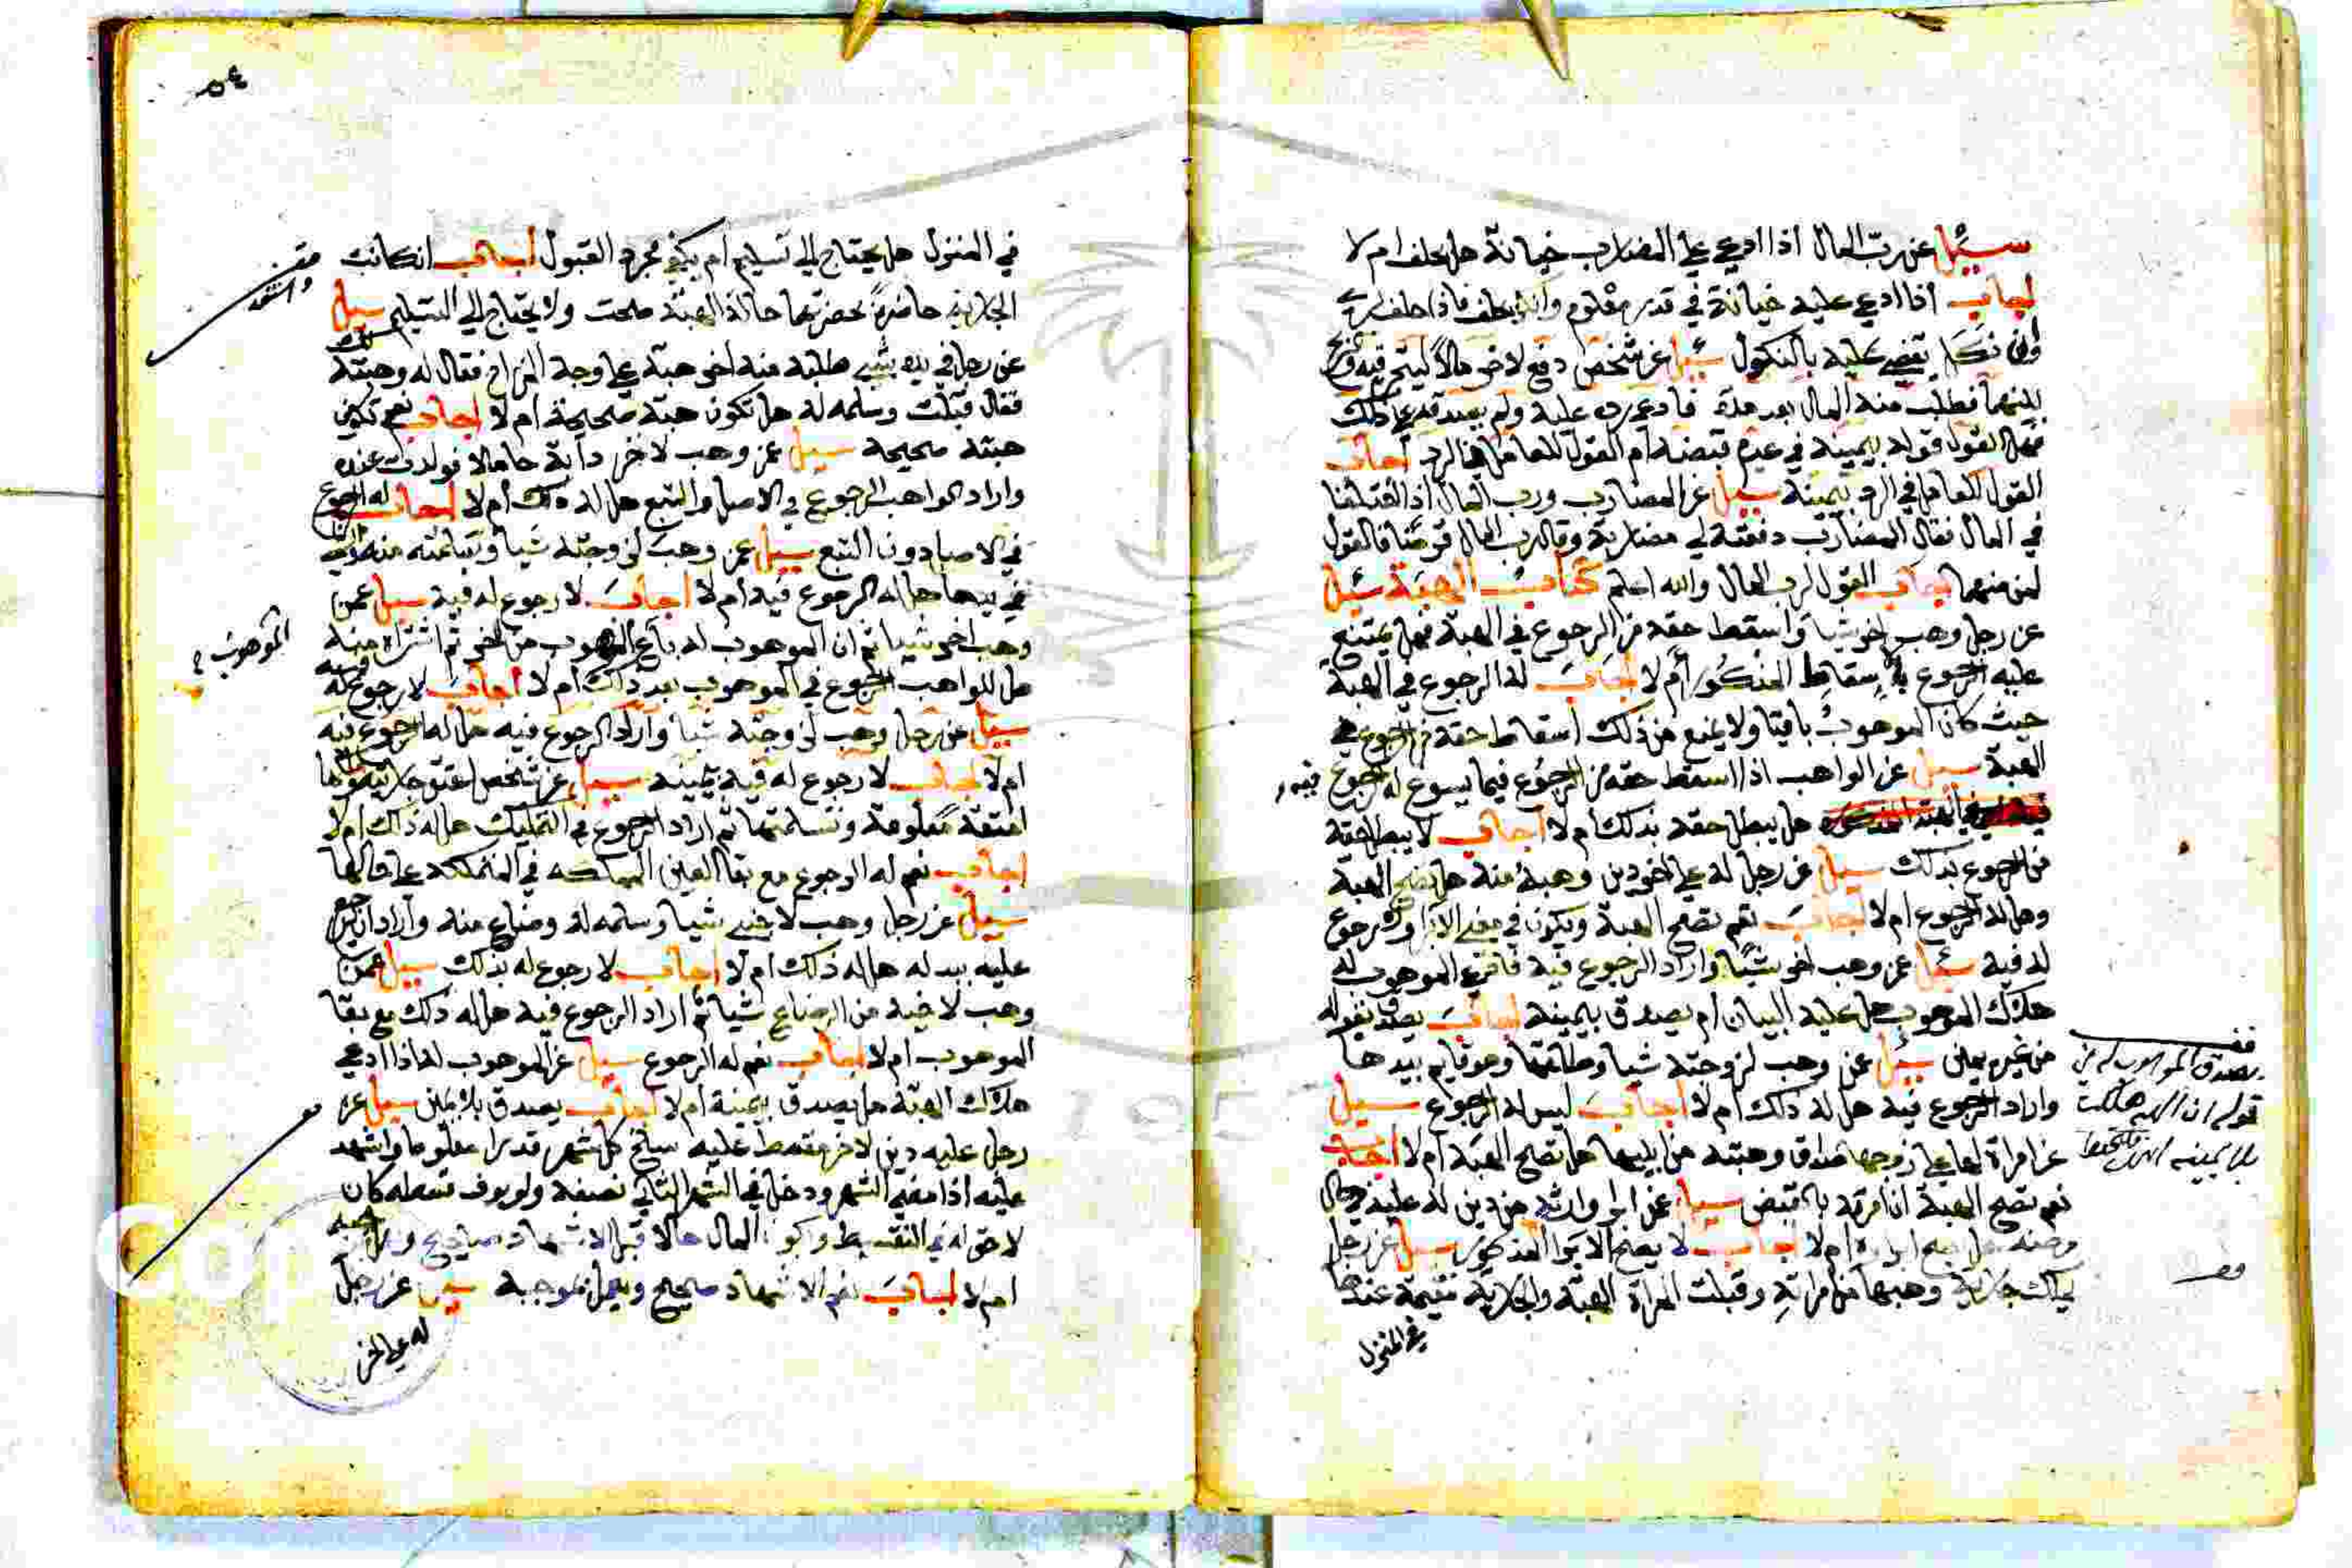 سئل عن رب المال اذا ادعى على المضارب خيانة هل يحلف ام لا
اجاب اذا ادعى عليه خيانة في قدر معلوم وانكر يحلف فاذا حلف برئ
وان نكل يقضى عليه بالنكول سئل عن شخص دفع لاخر مالا ليتجر فيه والربح
بينهما فطلب منه المال بعد مدة فادعى رده عليه ولم يصدقه على ذلك
فهل القول قوله بيمينه في عدم قبضه ام القول للعامل في الرد اجاب
القول للعامل في الرد بيمينه سئل عن المضارب ورب المال اذا اختلفا
في المال فقال المضارب دفعته لي مضاربة وقال رب المال قرضا فالقول
لمن منهما اجاب القول لرب المال والله اعلم كتاب الهبة سئل
عن رجل وهب اخر شيا واسقط حقه من الرجوع في الهبة فهل يمتنع
عليه الرجوع بالاسقاط المذكور ام لا اجاب له الرجوع في الهبة
حيث كان الموهوب باقيا ولا يمنع من ذلك اسقاط حقه من الرجوع في
الهبة سئل عن الواهب اذا اسقط حقه من الرجوع فيما يسوع له الرجوع فيه
هل يبطل حقه بذلك ام لا اجاب لا يبطل حقه
من الرجوع بذلك سئل عن رجل له على اخر دين وهبه منه هل تصح الهبة
وهل له الرجوع ام لا اجاب نعم تصح الهبة وتكون في معنى الابرا ولا رجوع
له فيه سئل عن وهب اخر شيئا واراد الرجوع فيه فادعى الموهوب له
هلاك الموهوب هل عليه البيان ام يصدق بيمينه اجاب يصدق بقوله
من غير يمين سئل عن وهب لزوجته شيا وطلقها وهو قايم بيدها
واراد الرجوع فيه هل له ذلك ام لا اجاب ليس له الرجوع سئل
عن امراة لها على زوجها صداق وهبته من ابنيها هل تصح الهبة ام لا اجاب
نعم تصح الهبة ان امرته بالقبض سئل عن ابرا وارثه من دين له عليه في حال
مرضه هل يصح ابراءه ام لا اجاب لا يصح الابرا المذكور سئل عن رجل
يملك جارية وهبها من امراته وقبلت المراة الهبة والجارية مقيمة عندها
في المنزل
يصدق الموهوب له في
قوله ان الهبة هلكت
بلا يمينه
في المنزل هل يحتاج الى تسليم ام يكفي مجرد القبول اجاب ان كانت
الجارية حاضرة بحضرتهما حالة الهبة صحت ولا يحتاج الى التسليم سئل
عن رجل في يده شي طلبه منه اخر هبة على وجه المزاح فقال له وهبته لك
فقال قبلت وسلمه له هل تكون هبة صحيحة ام لا اجاب نعم تكون
هبته صحيحة سئل عمن وهب لاخر دابة حاملا فولدت عنده
واراد الواهب الرجوع في الاصل والتبع هل له ذلك ام لا اجاب له الرجوع
في الاصل دون التبع سئل عمن وهب لزوجته شيا وتسلمته منه
في بيها هل له الرجوع فيه ام لا اجاب لا رجوع له فيه سئل عمن
وهب اخر شيا ثم ان الموهوب له باع الموهوب من اخر ثم اشتراه منه
هل للواهب الرجوع في الموهوب بعد ذلك ام لا اجاب لا رجوع له فيه
سئل عن رجل وهب لزوجته شيا واراد الرجوع فيه هل له الرجوع فيه
ام لا اجاب لا رجوع له فيه بيمينه سئل عن شخص اعتق جاريته
امتعة معلومة وتسلمتها ثم اراد الرجوع في التمليك هل له ذلك ام لا
اجاب نعم له الرجوع مع بقا العين المملكه في المتملكة على حالها
سئل عن رجل وهب لاخيه شيا وسلمه له وضاع منه واراد ان يرجع
عليه ببدله هل له ذلك ام لا اجاب لا رجوع له بذلك سئل عمن
وهب لاخيه من الرضاع شيا ثم اراد الرجوع فيه هل له ذلك مع بقا
الموهوب ام لا اجاب نعم له الرجوع سئل عن الموهوب له اذا ادعى
هلاك الهبة هل يصدق بيمينه ام لا اجاب يصدق بلا يمين سئل عن
رجل عليه دين لاخر مقسط عليه سلخ كل شهر قدرا معلوما واشهد
عليه اذا مضى الشهر ودخل في الشهر الثاني نصفه ولم يوف قسطه كان
لا حق له في التقسيط ويكون المال حالا فهل الاشهاد صحيح
ام لا اجاب نعم الاشهاد صحيح ويعمل بموجبه سئل عن رجل
له على اخر
الموهوب
٥٤